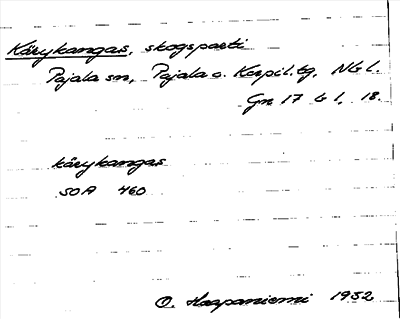 Kärykangas, skogsparti
Pajala sn, Pajala o. Korpil. tg, Nb l.
Gn 17 b 1, 18.
kärykangas
SOA 460
O. Haapaniemi 1932